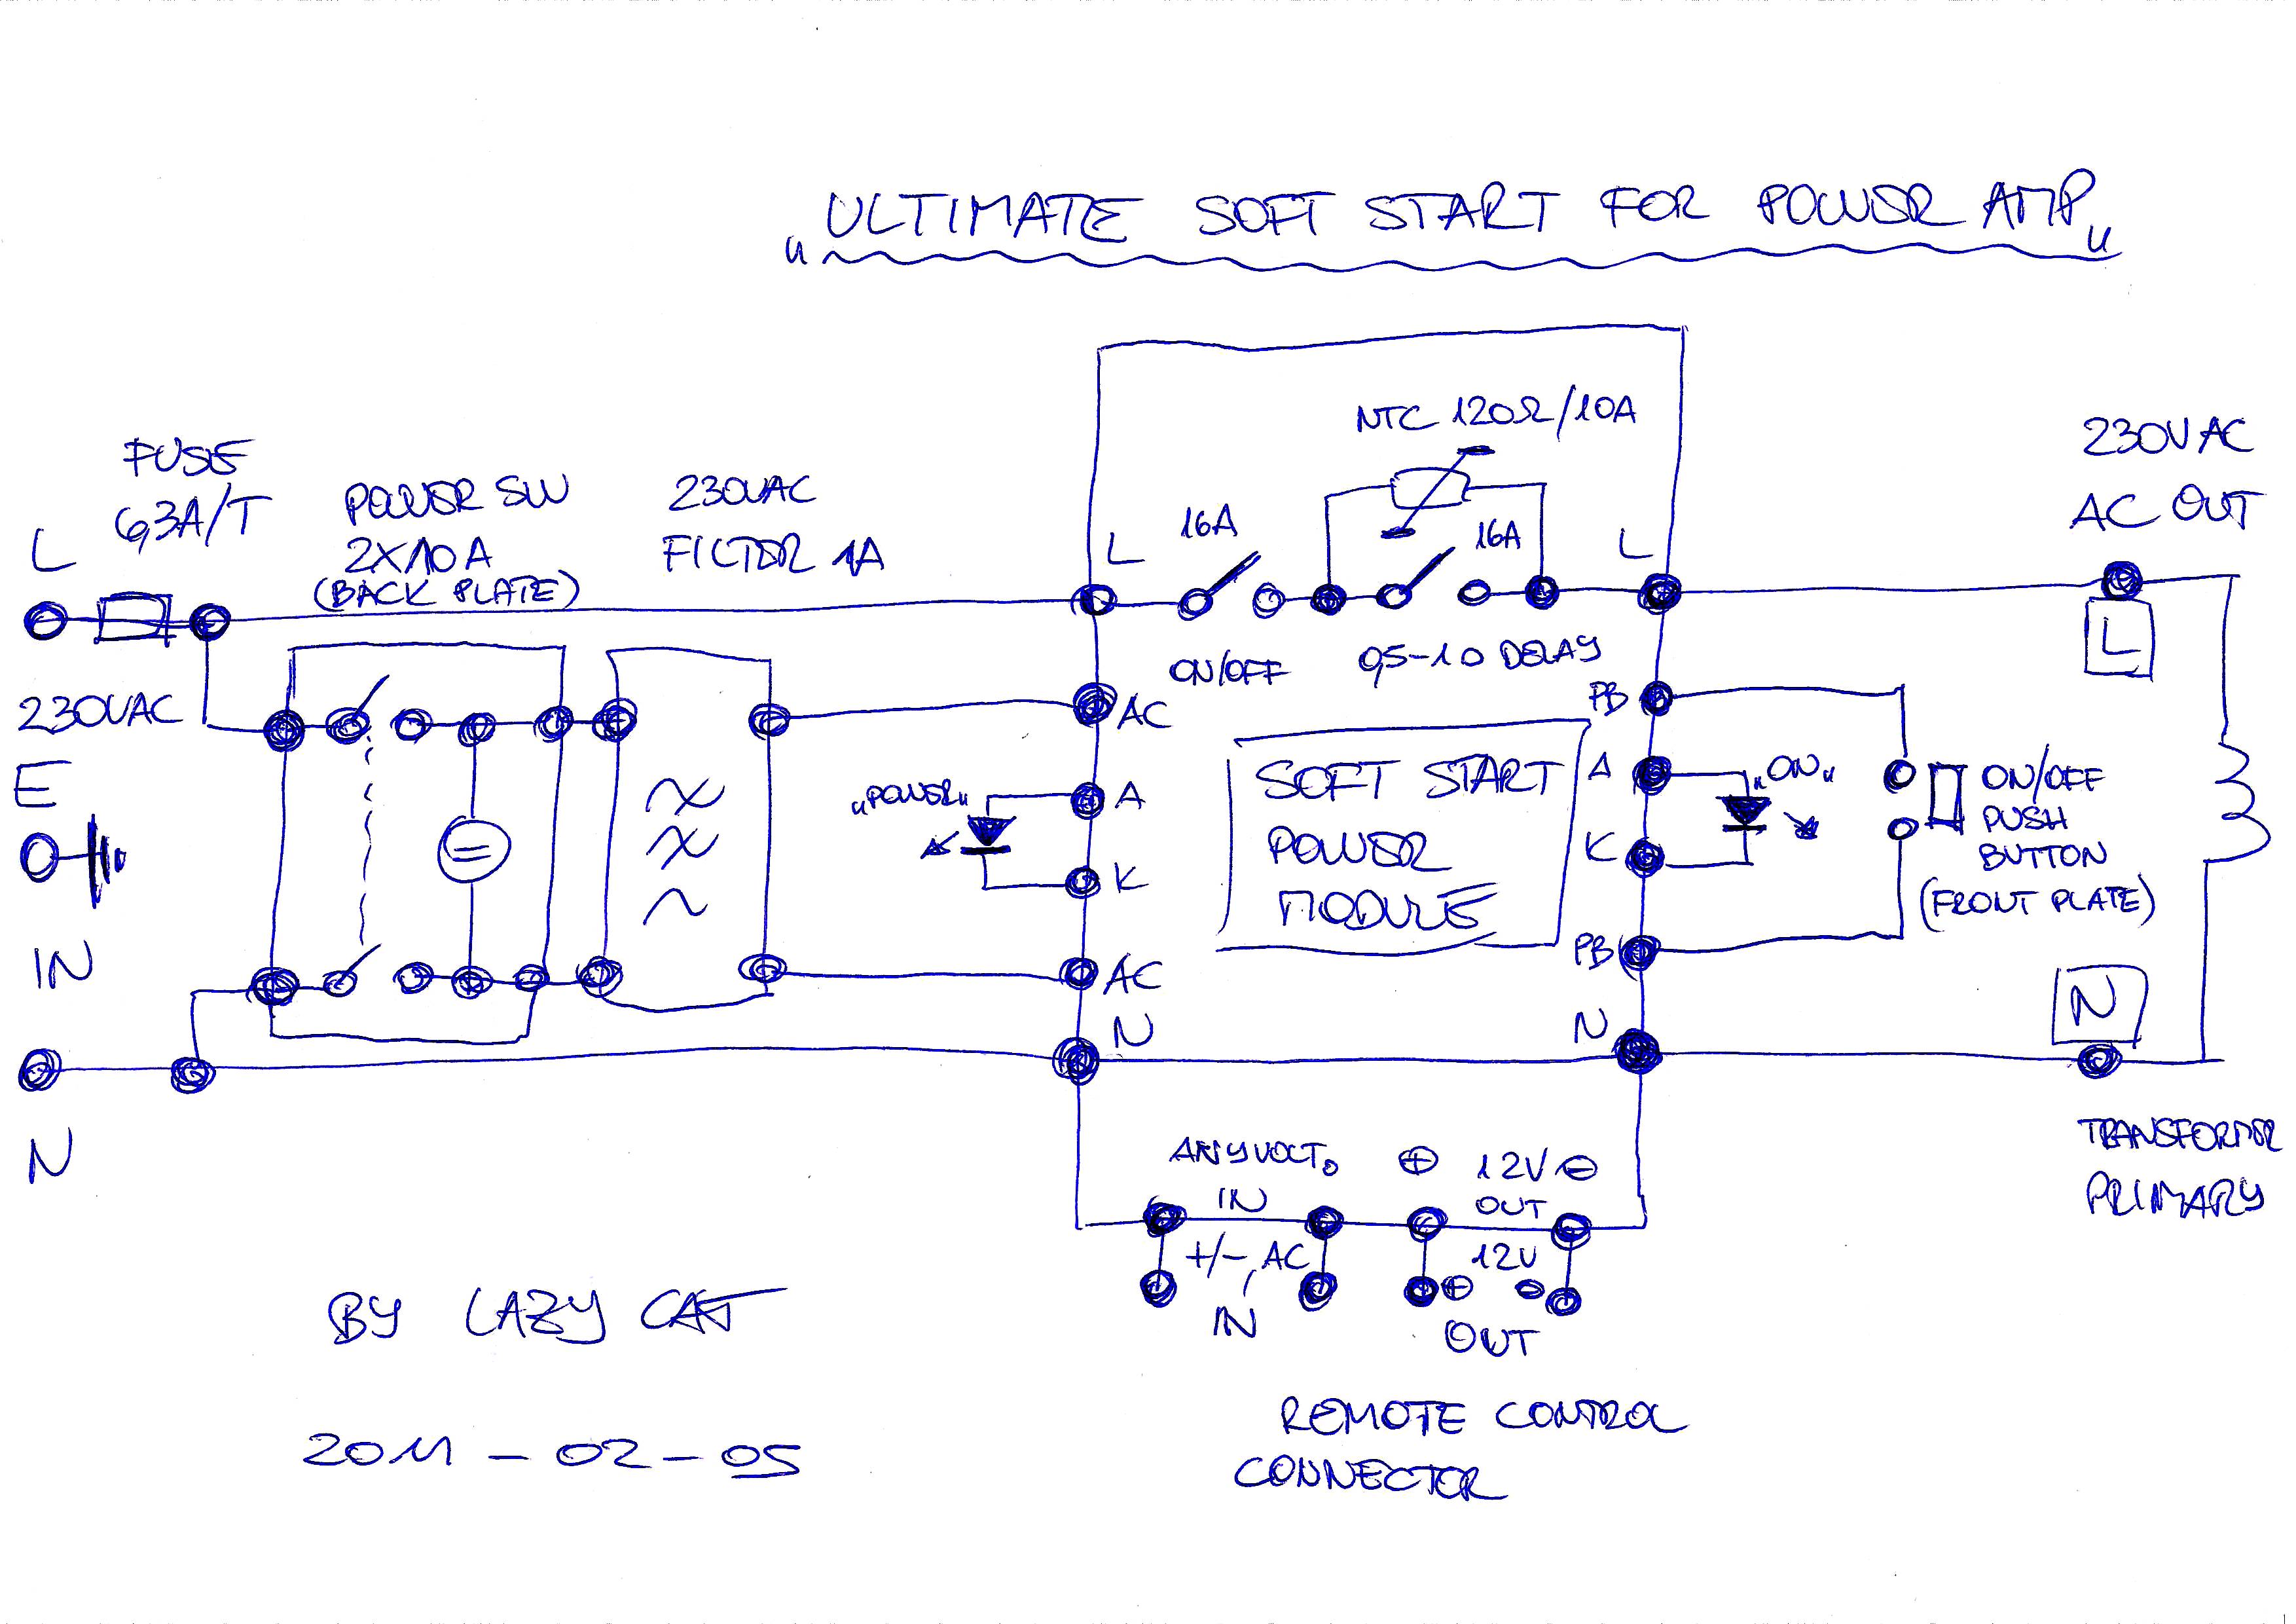 „ULTIMATE SOFT START FOR POWER AMP"
FUSE
6,3A/T
L
POWER SW
2X10A
(BACK PLATE)
230VAC
FILTER 1A
230VAC
E
IN
N
NTC 120Ω/10A
L
16A
16A
L
ON/OFF
0,5-1.0 DELAY
AC
„POWER"
A
K
AC
N
SOFT START
POWER
MODULE
PB
A
„ON"
K
PB
N
ON/OFF
PUSH
BUTTON
(FRONT PLATE)
230VAC
AC OUT
L
N
TRANSFORMER
PRIMARY
ANYVOLT.
IN
+/-, AC
IN
⊕ 12V ⊖
OUT
12V
⊕ ⊖
OUT
REMOTE CONTROL
CONNECTOR
BY LAZY CAT
2011-02-05